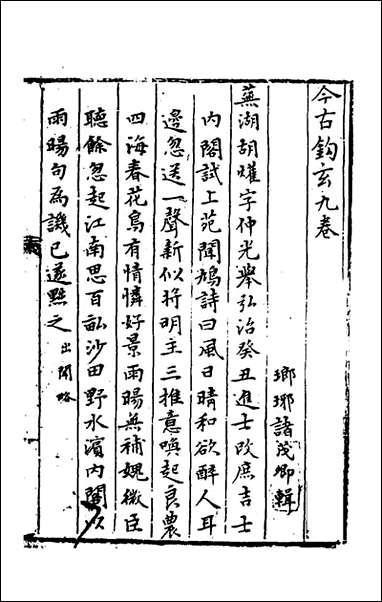 今古鈎玄九卷
瑯琊諸茂卿輯
蕪湖胡爟字仲光舉弘治癸丑進士改庶吉士
内閣試上苑聞鳩詩曰風日晴和欲醉人耳
邉忽送一聲新似将明主三推意喚起良農
四海春花鳥有情憐好景雨暘無補媿微臣
聽餘忽起江南思百畝沙田野水濵内閣以
雨暘句為譏已遂黜之 出閒略